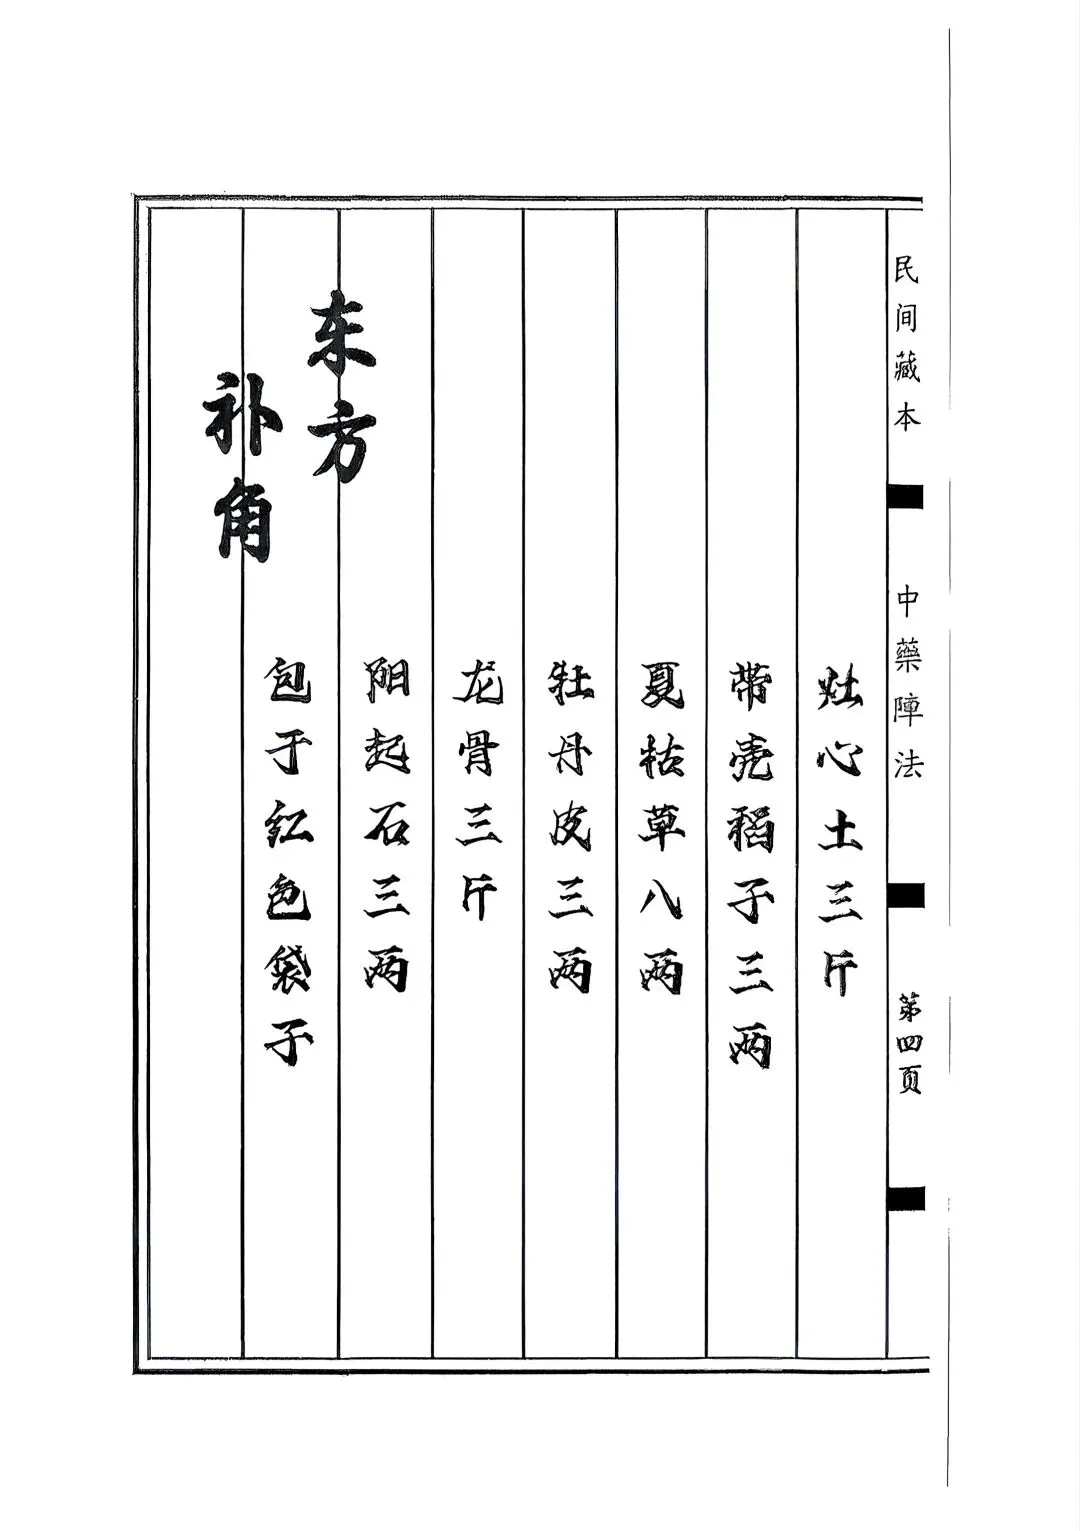 民间藏本
中藥陣法
第四页
灶心土三斤
带壳稻子三两
夏枯草八两
牡丹皮三两
龙骨三斤
阳起石三两
包于红色袋子
东方
补角